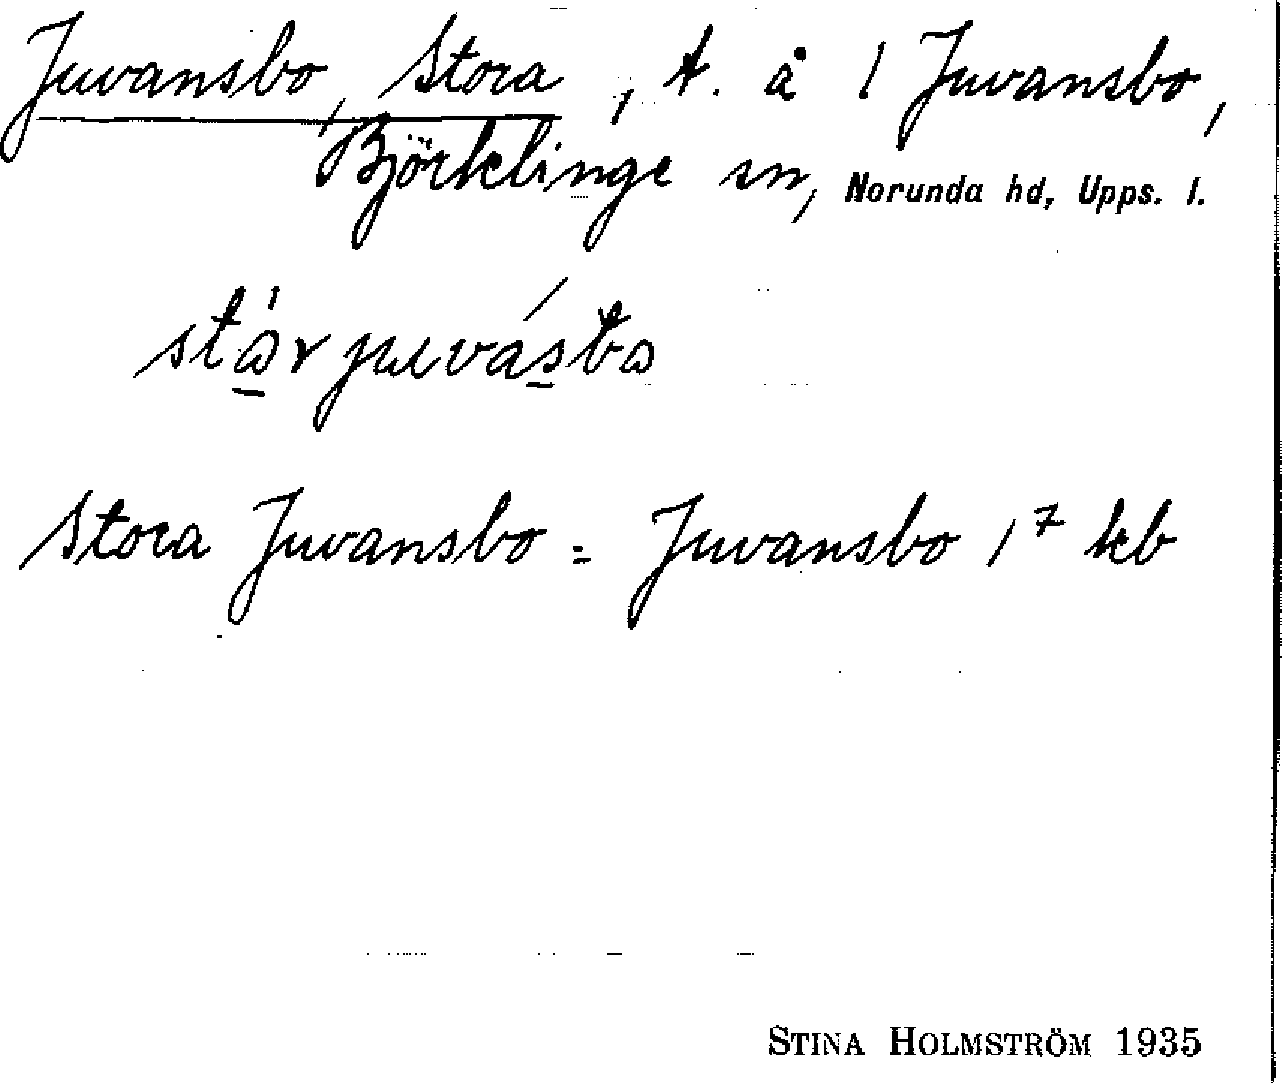 Juvansbo, Stora, t. å 1 Juvansbo,
Björklinge sn, Norunda hd, Upps. l.
Stora Juvansbo = Juvansbo 1⁷ kb
STINA HOLMSTRÖM 1935